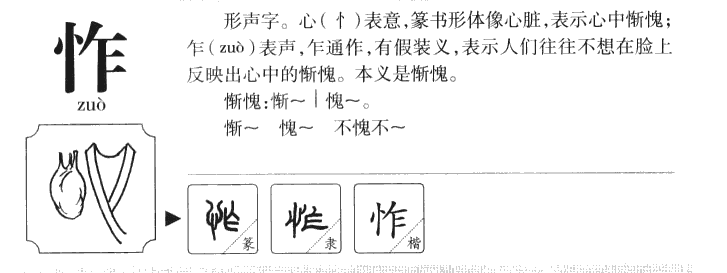 怍
zuò
形声字。心(忄)表意,篆书形体像心脏,表示心中惭愧;
乍(zuò)表声,乍通作,有假装义,表示人们往往不想在脸上
反映出心中的惭愧。本义是惭愧。
惭愧:惭～｜愧～。
惭～ 愧～ 不愧不～
怍 篆
怍 隶
怍 楷